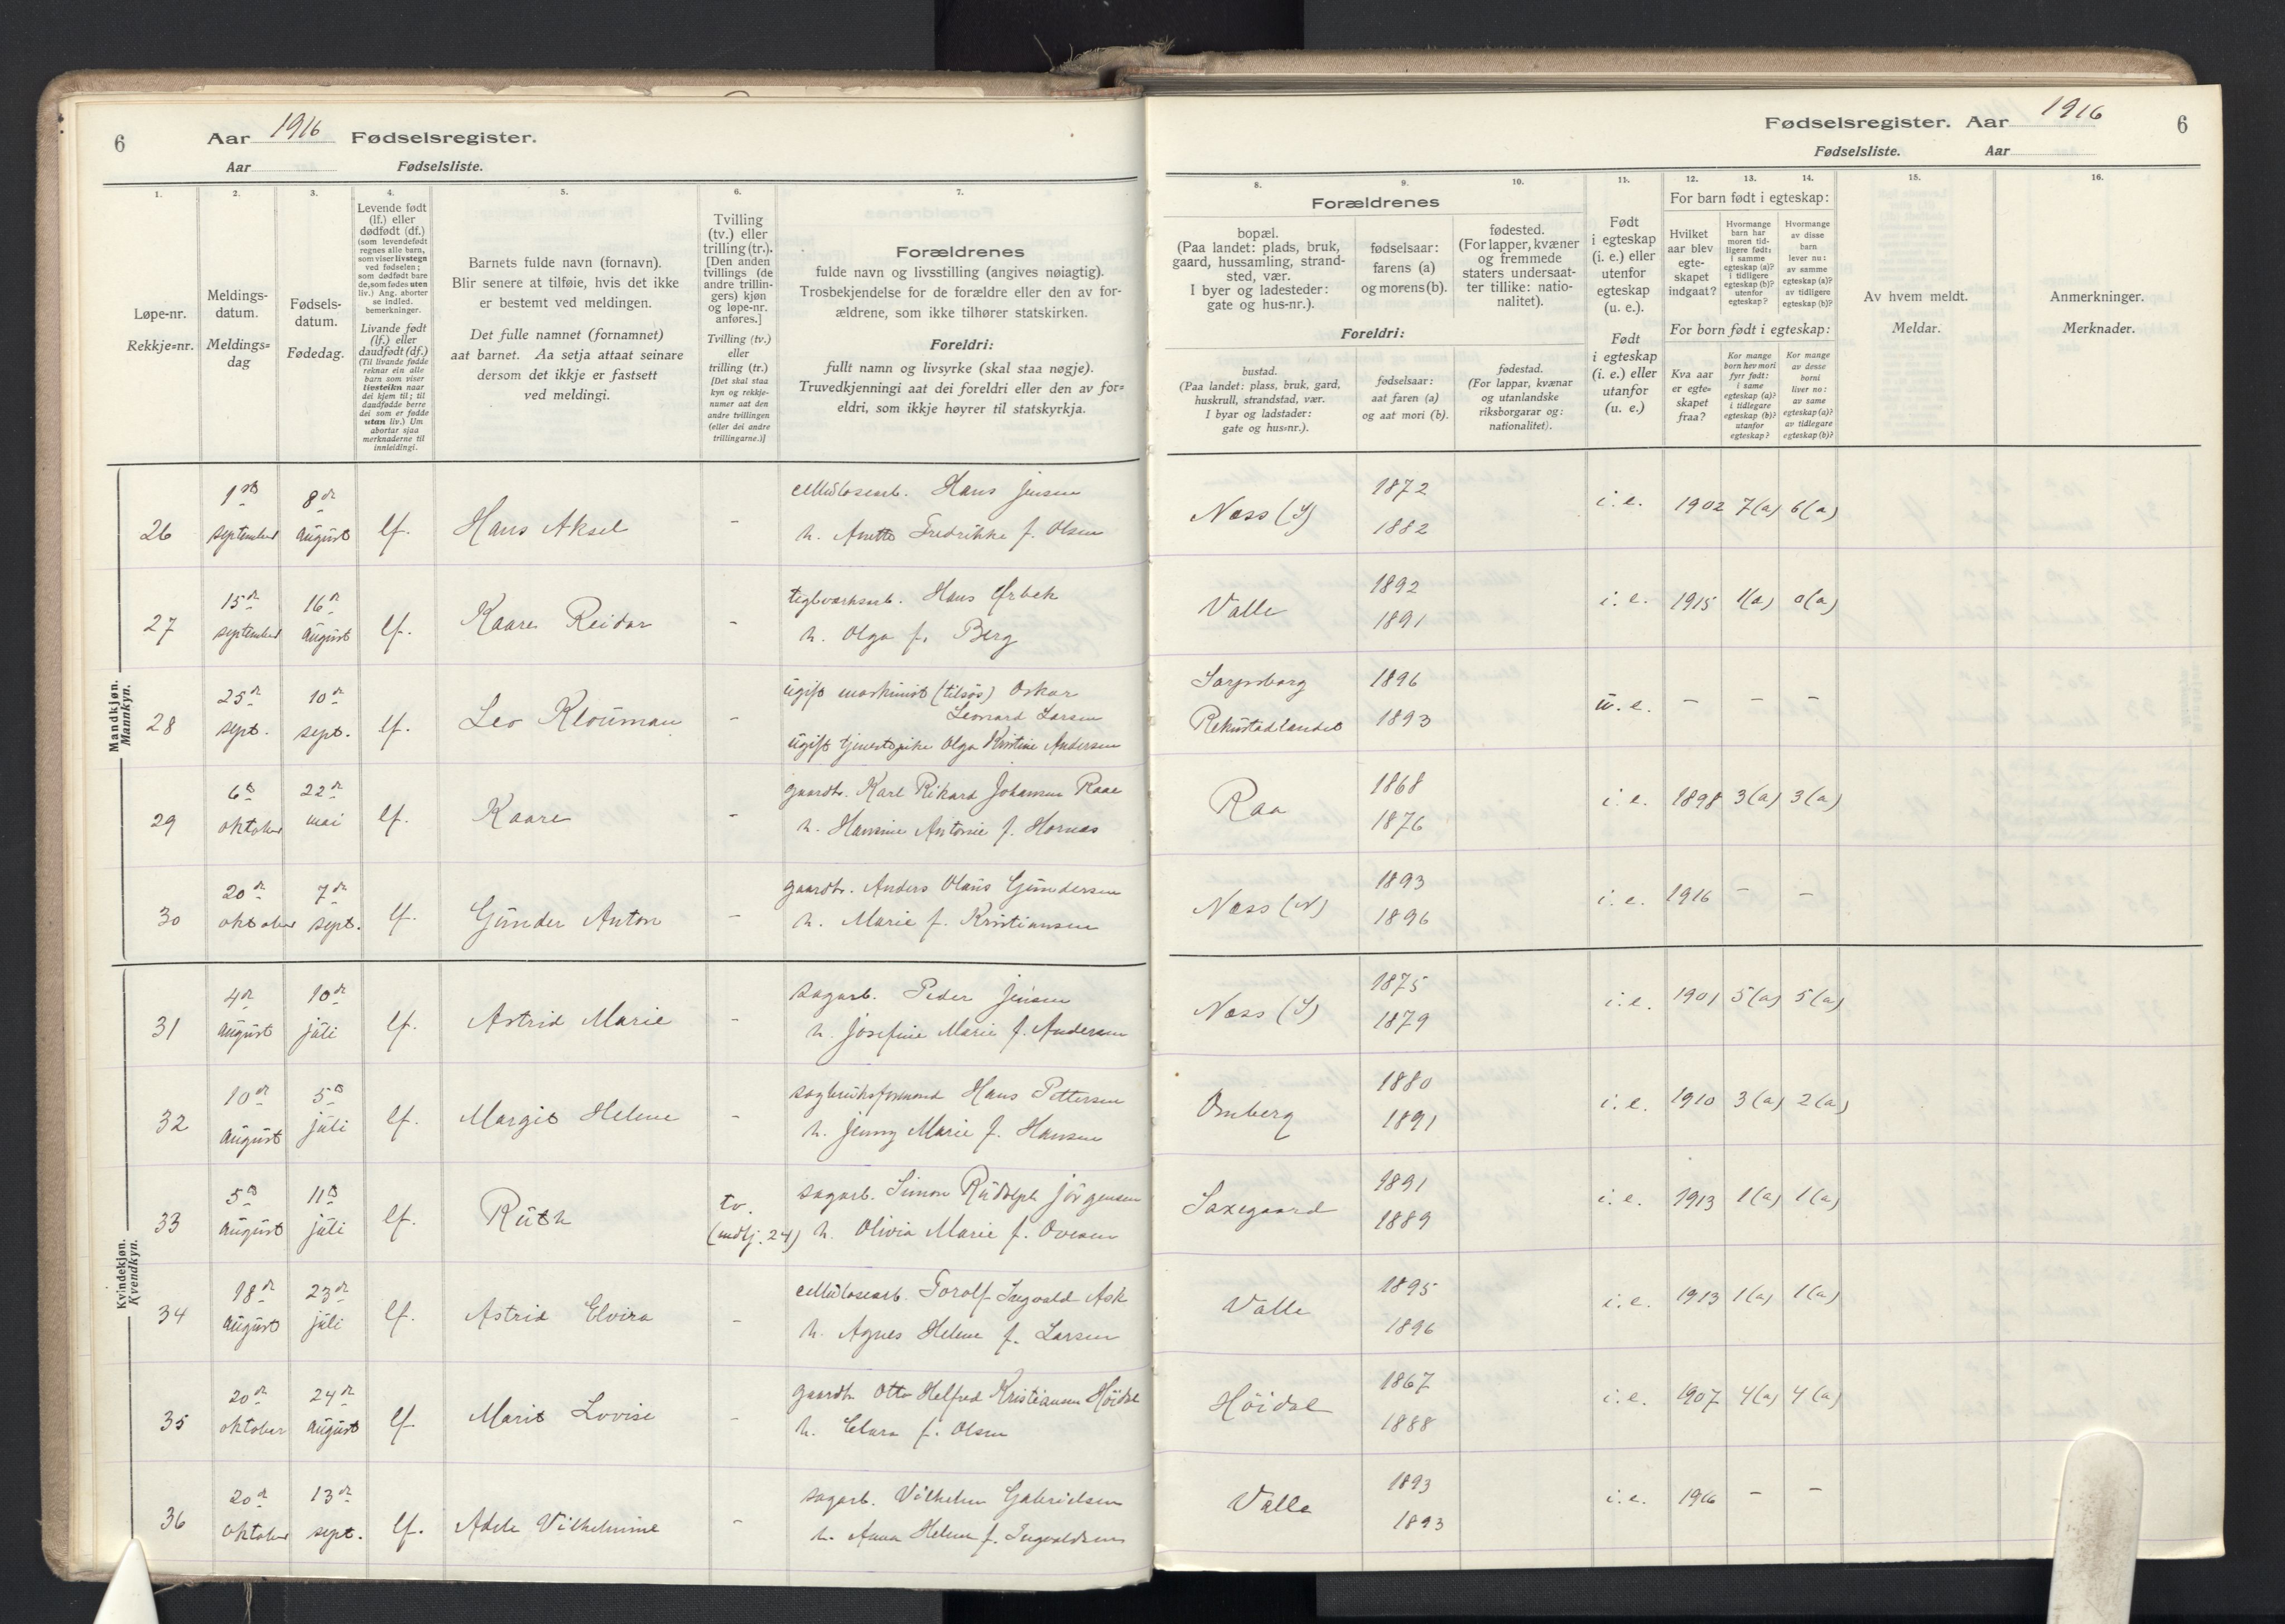 6
Aar 1916 Fødselsregister.
Aar Fødselsliste.
1. 2. 3. 4. 5. 6. 7.
Løpe-nr.
Rekkje=nr.
Meldings-
datum.
Meldings=
dag
Fødsels-
datum.
Fødedag.
Levende født
(lf.) eller
dødfødt (df.)
(som levendefødt
regnes alle barn,
som viser livstegn
ved fødselen;
som dødfødt bare
de, som fødes uten
liv.) Ang. aborter
se indled.
bemerkninger.
Livande født
(lf.) eller
daudfødt (df.)
(Til livande fødde
reknar ein alle
barn som viser
livsteikn naar
dei kjem til; til
daudfødde berre
dei som er fødde
utan liv.) Um
abortar sjaa
merknaderne til
innleidingi.
Barnets fulde navn (fornavn).
Blir senere at tilføie, hvis det ikke
er bestemt ved meldingen.
Det fulle namnet (fornamnet)
aat barnet. Aa setja attaat seinare
dersom det ikkje er fastsett
ved meldingi.
Tvilling
(tv.) eller
trilling (tr.).
[Den anden
tvillings (de
andre trillin-
gers) kjøn
og løpe-nr.
anføres.]
Tvilling (tv.)
eller
trilling (tr.)
[Det skal staa
kyn og rekkje-
numer aat den
andre tvillingen
(eller dei andre
trillingarne.)]
Forældrenes
fulde navn og livsstilling (angives nøiagtig).
Trosbekjendelse for de forældre eller den av for-
ældrene, som ikke tilhører statskirken.
Foreldri:
fullt namn og livsyrke (skal staa nøgje).
Truvedkjenningi aat dei foreldri eller den av for=
eldri, som ikkje høyrer til statskyrkja.
Mandkjøn.
Mannkyn.
26 1ste september 8de august lf. Hans Aksel - cellulosearb. Hans Jensen
h. Anette Fredrikke f. Olsen
27 15de september 16de august lf. Kaare Reidar - teglverksarb. Hans Ørbek
h. Olga f. Berg
28 25de sept. 10de sept. lf. Leo Klouman - ugift maskinist (tilsøs) Oskar
Leonard Larsen
ugift tjenestepike Olga Kristine Andersen
29 6te oktober 22de mai lf. Kaare - gaardbr. Karl Rikard Johansen Raae
h. Hannine Antonie f. Hornæs
30 20de oktober 7de sept. lf. Gunder Anton - gaardbr. Anders Olaus Gundersen
h. Marie f. Kristiansen
Kvindekjøn.
Kvendkyn.
31 4de august 10de juli lf. Astrid Marie - sagarb. Peder Jensen
h. Josefine Marie f. Andersen
32 10de august 5te juli lf. Margit Helene - sagbruksformand Hans Pettersen
h. Jenny Marie f. Hansen
33 5te august 11te juli lf. Ruth tv. (mdkj. 24) sagarb. Simon Rudolph Jörgensen
h. Olivia Marie f. Ovesen
34 18de august 23de juli lf. Astrid Elvira - cellulosearb. Torolf Ingvald Ask
h. Agnes Helene f. Larsen
35 20de oktober 24de august lf. Marit Lovise - gaardbr. Otto Helfred Kristiansen Höidal
h. Clara f. Olsen
36 20de oktober 13de sept. lf. Adele Vilhelmine - sagarb. Vilhelm Gabrielsen
h. Anna Helene f. Ingvaldsen
Fødselsregister. Aar 1916
6
Fødselsliste. Aar
8. 9. 10. 11. 12. 13. 14. 15. 16.
Forældrenes
bopæl.
(Paa landet: plads, bruk,
gaard, hussamling, strand-
sted, vær.
I byer og ladesteder:
gate og hus-nr.).
fødselsaar:
farens (a)
og morens (b).
fødested.
(For lapper, kvæner
og fremmede
staters undersaat-
ter tillike: natio-
nalitet).
Foreldri:
bustad.
(Paa landet: plass, bruk, gard,
huskrull, strandstad, vær.
I byar og ladstader:
gate og hus=nr.).
fødselsaar:
aat faren (a)
og aat mori (b).
fødestad.
(For lappar, kvænar
og utanlandske
riksborgarar og:
nationalitet).
Født
i egteskap
(i. e.) eller
utenfor
egteskap
(u. e.).
Født
i egteskap
(i. e.) eller
utanfor
(u. e.)
For barn født i egteskap:
Hvilket
aar blev
egte-
skapet
indgaat?
Hvormange
barn har
moren tid-
ligere født:
i samme
egteskap (a)?
i tidligere
egteskap (b)?
utenfor
egteskap?
Hvormange
av disse
barn
lever nu:
av samme
egteskap (a)?
av tidligere
egteskap (b)?
For born født i egteskap:
Kva aar
er egte=
skapet
fraa?
Kor mange
born hev mori
fyrr født:
i same
egteskap (a)?
i tidlegare
egteskap (b)?
utanfor
egteskap?
Kor mange
av desse
borni
liver no:
av same
egteskap (a)?
av tidlegare
egteskap (b)?
Av hvem meldt.
Meldar.
Anmerkninger.
Merknader.
Næss (S) 1872 1882 i. e. 1902 7(a) 6(a)
Valle 1892 1891 i. e. 1915 1(a) 0(a)
Sarpsborg 1896
Rekustadlandet 1893 u. e. - - -
Raa 1868 1876 i. e. 1898 3(a) 3(a)
Næss (N) 1893 1896 i. e. 1916 - -
Næss (S) 1875 1879 i. e. 1901 5(a) 5(a)
Omberg 1880 1891 i. e. 1910 3(a) 2(a)
Saxegaard 1891 1889 i. e. 1913 1(a) 1(a)
Valle 1895 1896 i. e. 1913 1(a) 1(a)
Höidal 1867 1888 i. e. 1907 4(a) 4(a)
Valle 1893 1893 i. e. 1916 - -